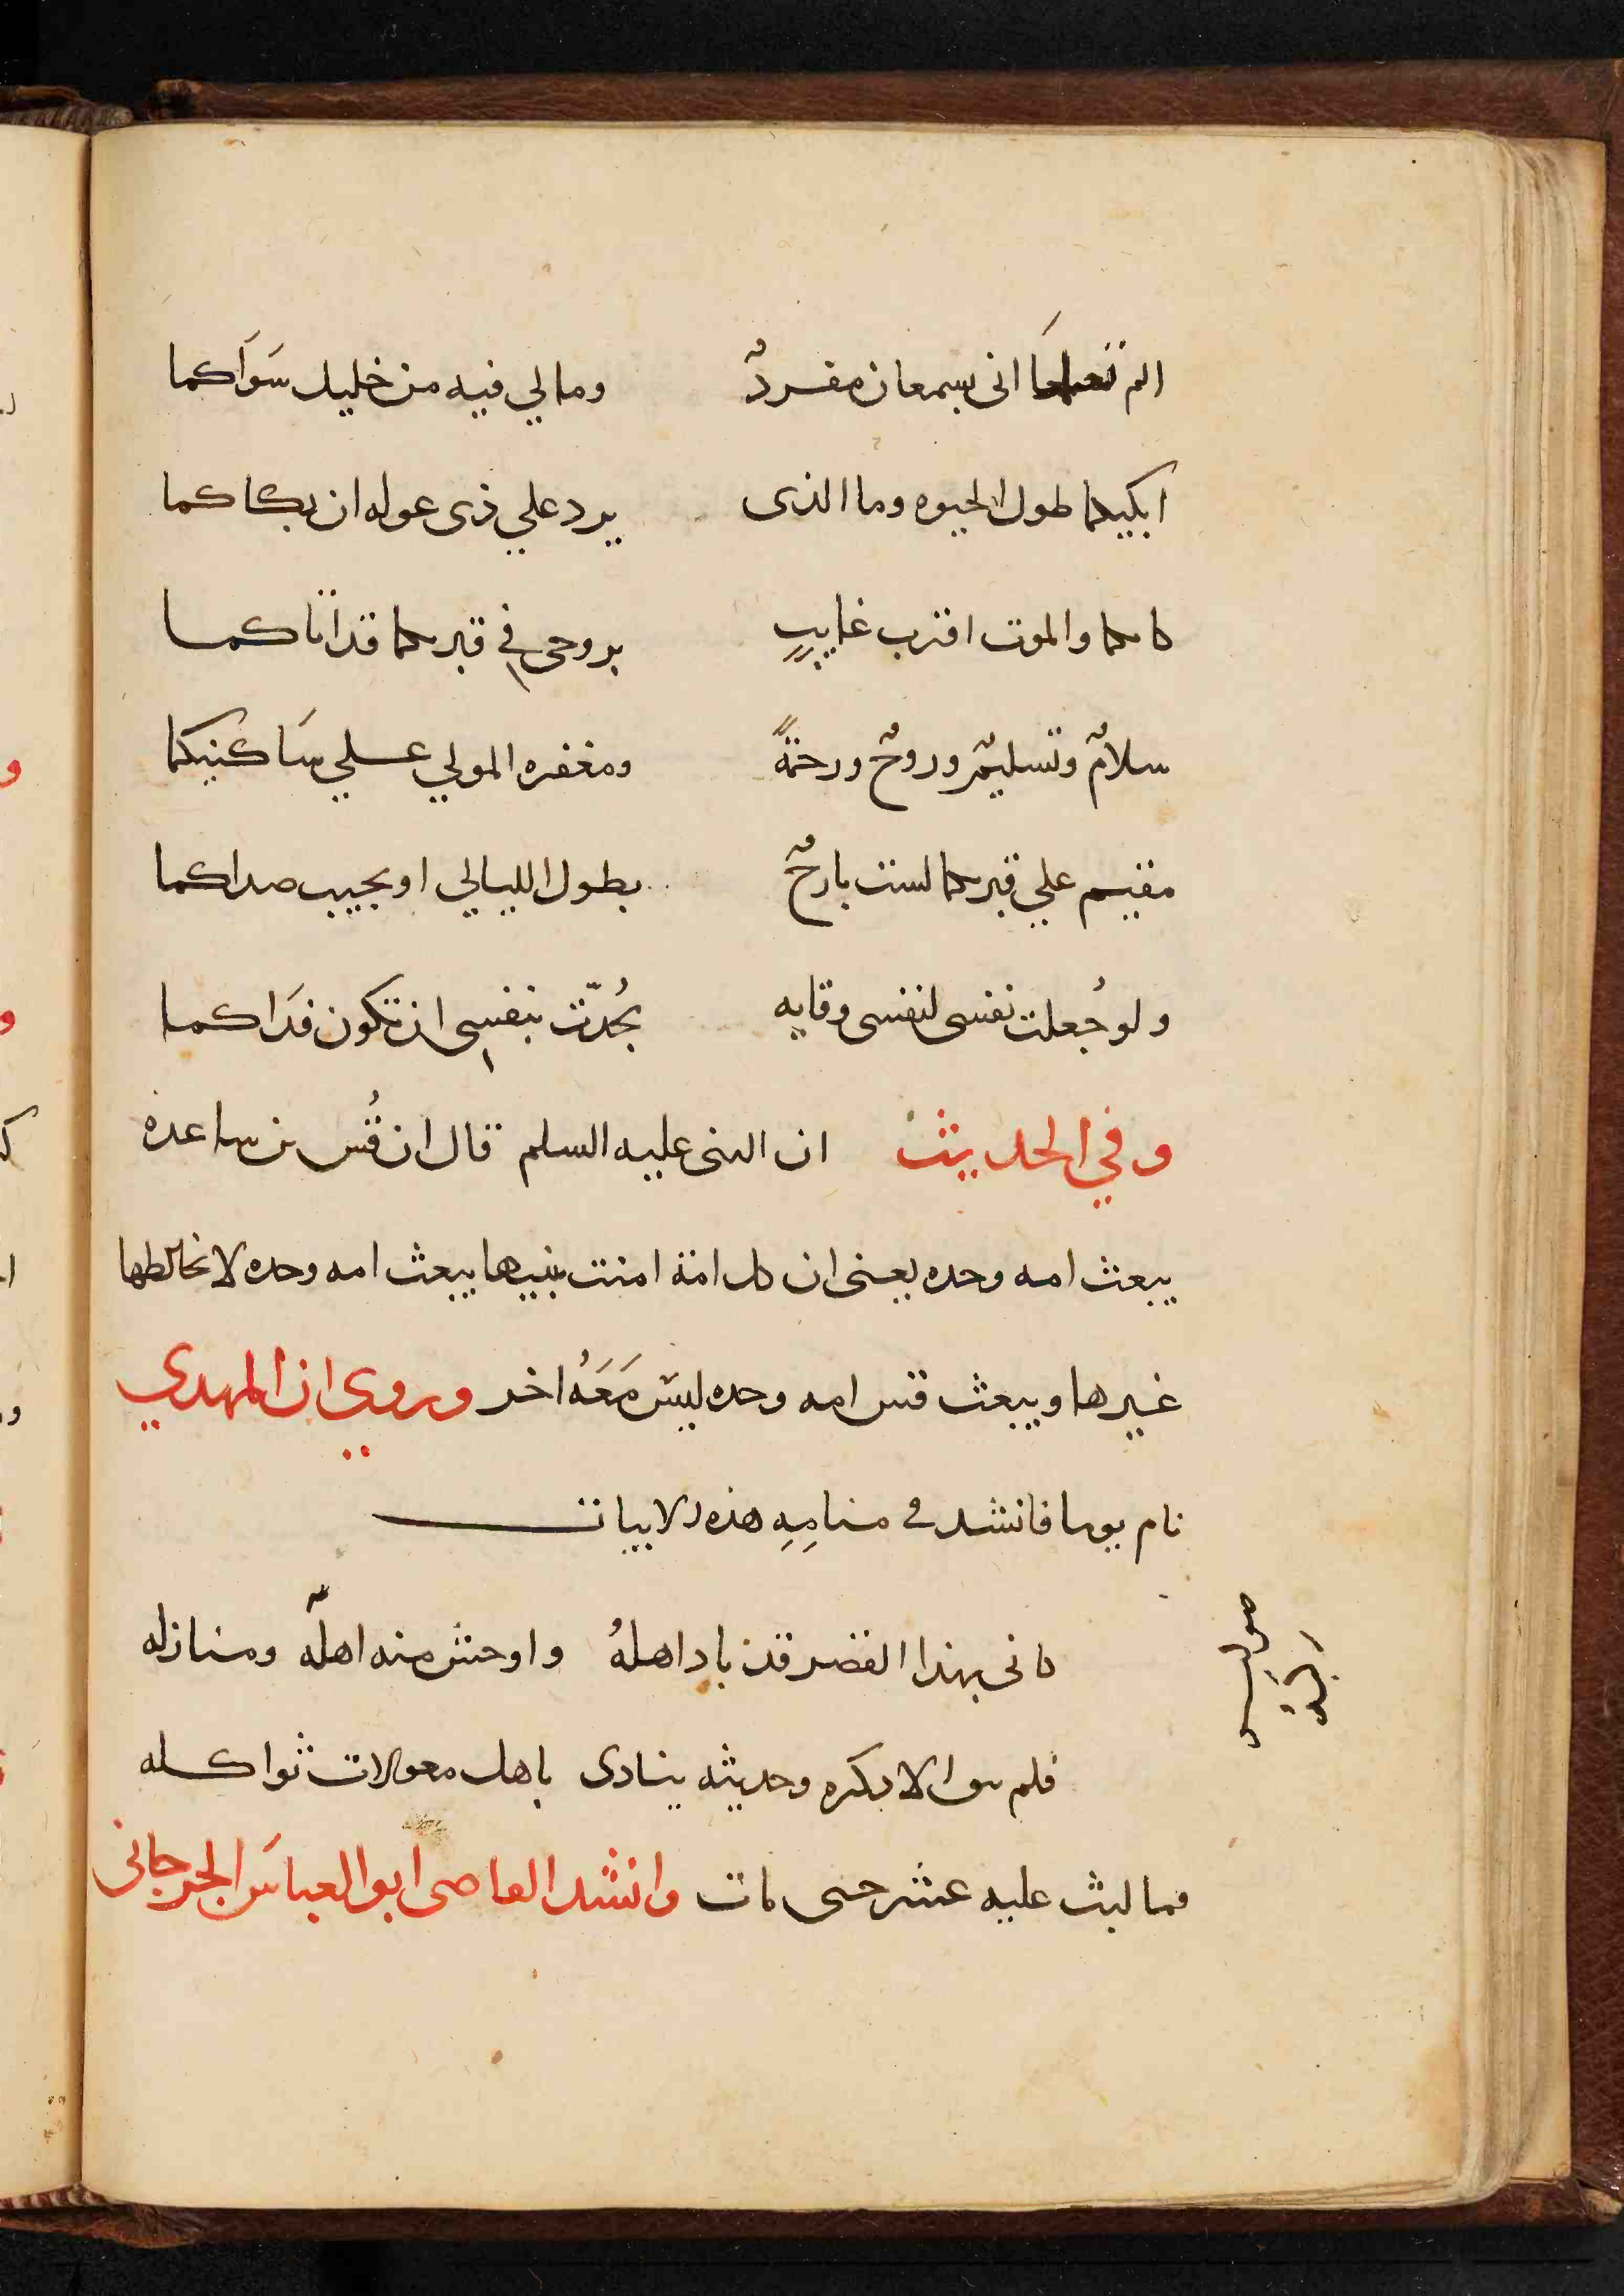 الم تعلما انى بسمعان مفردٌ وما لي فيه من خليل سَوَاكما
ابكيكما طول الحيوه وما الذى يرد علي ذى عوله ان بكاكما
كانكما والموت اقرب غايبٍ بروحى في قبريكما قد اتاكما
سلامٌ وتسليمٌ وروحٌ ورحمةً ومغفره المولي علي سَاكنيكما
مقيم علي قبريكما لست بارحٌ بطول الليالي او يجيب صداكما
ولو جُعلت نفسى لنفسى وقايه بجُدّت بنفسي ان تكون فدَاكما
وفي الحديث ان النبى عليه السلم قال ان قُس بن ساعده
يبعث امه وحده يعنى ان كل امة امنت بنبيها يبعث امه وحده لا يخالطها
غيرها ويبعث قس امه وحده ليس مَعَهُ اخر وروي ان المهدي
نام يوما فانشد في منامِهِ هذه الابيات
كانى بهذا القصر قد باد اهلهُ واوحش منه اهلُه ومنازله
فلم يبق الا ذكره وحديثه ينادى باهل معولات ثواكله
فما لبث عليه عشر حتى مات وانشد القاضى ابو العباسَ الجرجانى